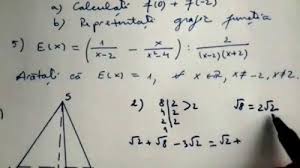 a) Calculați f(0) + f(-2)
b) Reprezentați grafic funcția
5) E(x) = (1/(x-2) - x/(x²-4)) : 2/(x-2)(x+2)
Arătați că E(x) = 1, x ∈ ℝ, x ≠ -2, x ≠ 2.
S
2) 8 | 2 > 2
4 | 2
2 | 2
1
√8 = 2√2
√2 + √8 - 3√2 = √2 +